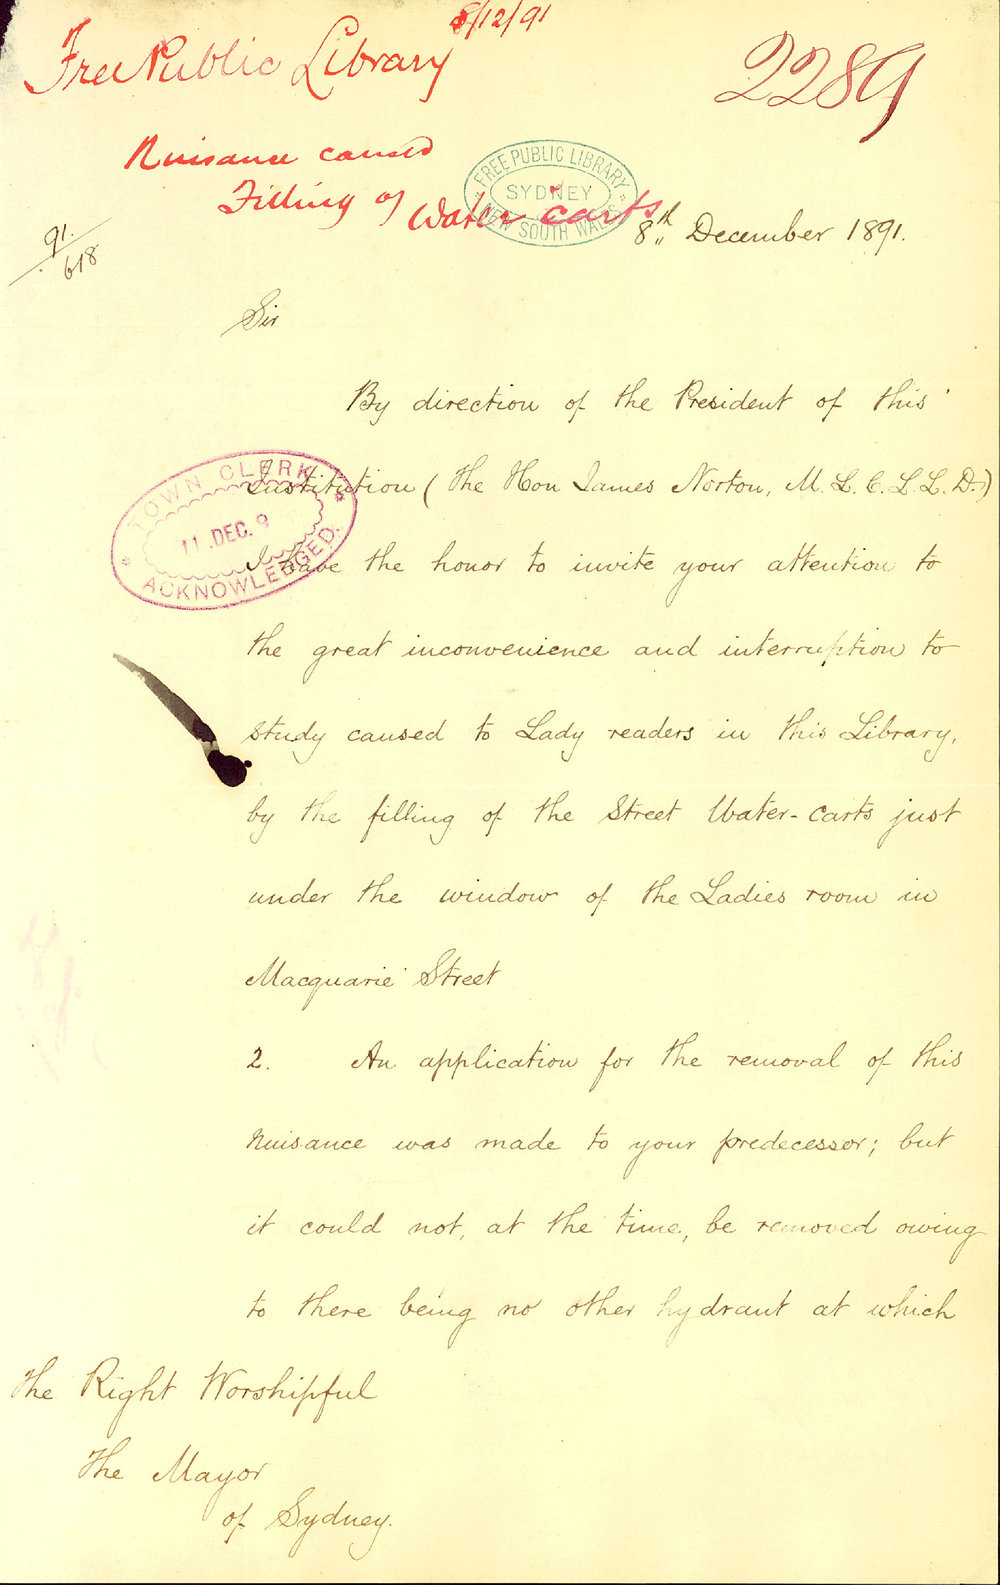 8/12/91
Free Public Library
2289
Nuisance caused
Filling of Water Carts
FREE PUBLIC LIBRARY
SYDNEY
NEW SOUTH WALES
91.
618
8th December 1891.
Sir
By direction of the President of this
Institution (the Hon James Norton, M. L. C. L L. D.)
I have the honor to invite your attention to
the great inconvenience and interruption to
study caused to Lady readers in this Library,
by the filling of the Street Water-Carts just
under the window of the Ladies room in
Macquarie Street
TOWN CLERK
11 DEC. 9
ACKNOWLEDGED.
2. An application for the removal of this
nuisance was made to your predecessor; but
it could not, at the time, be removed owing
to there being no other hydrant at which
The Right Worshipful
The Mayor
of Sydney.